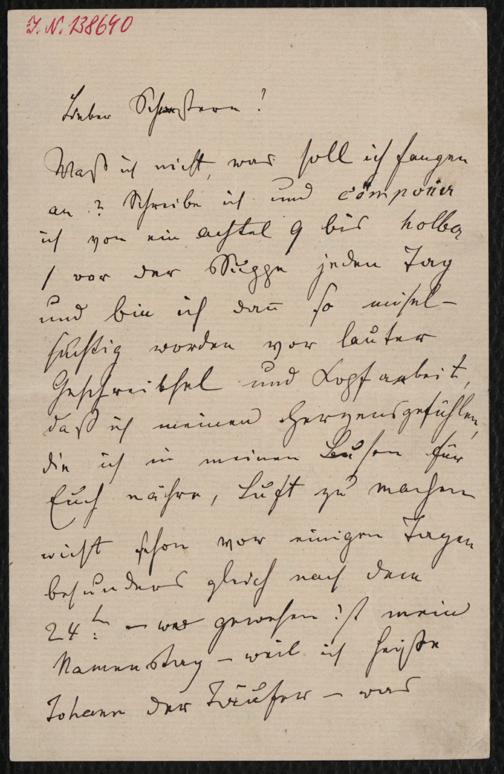 I. N. 138640
Lieber Schwstern!
Waß ich nicht, was soll ich fangen
an? Schreibe ich und componir
ich von ein achtel 9 bis holba
1 vor der Suppe jeden Tag
und bin ich dann so misel-
süchtig worden vor lauter
Geschreibsel und Kopfarbeit,
daß ich meinen Herzensgefühlen,
die ich in meinen Busen für
Euch nähre, Luft zu machen
nicht schon vor einigen Tagen
besunders gleich nach dem
24ten – wos gewesen ist mein
Namenstag – weil ich heiße
Johann der Täufer – was